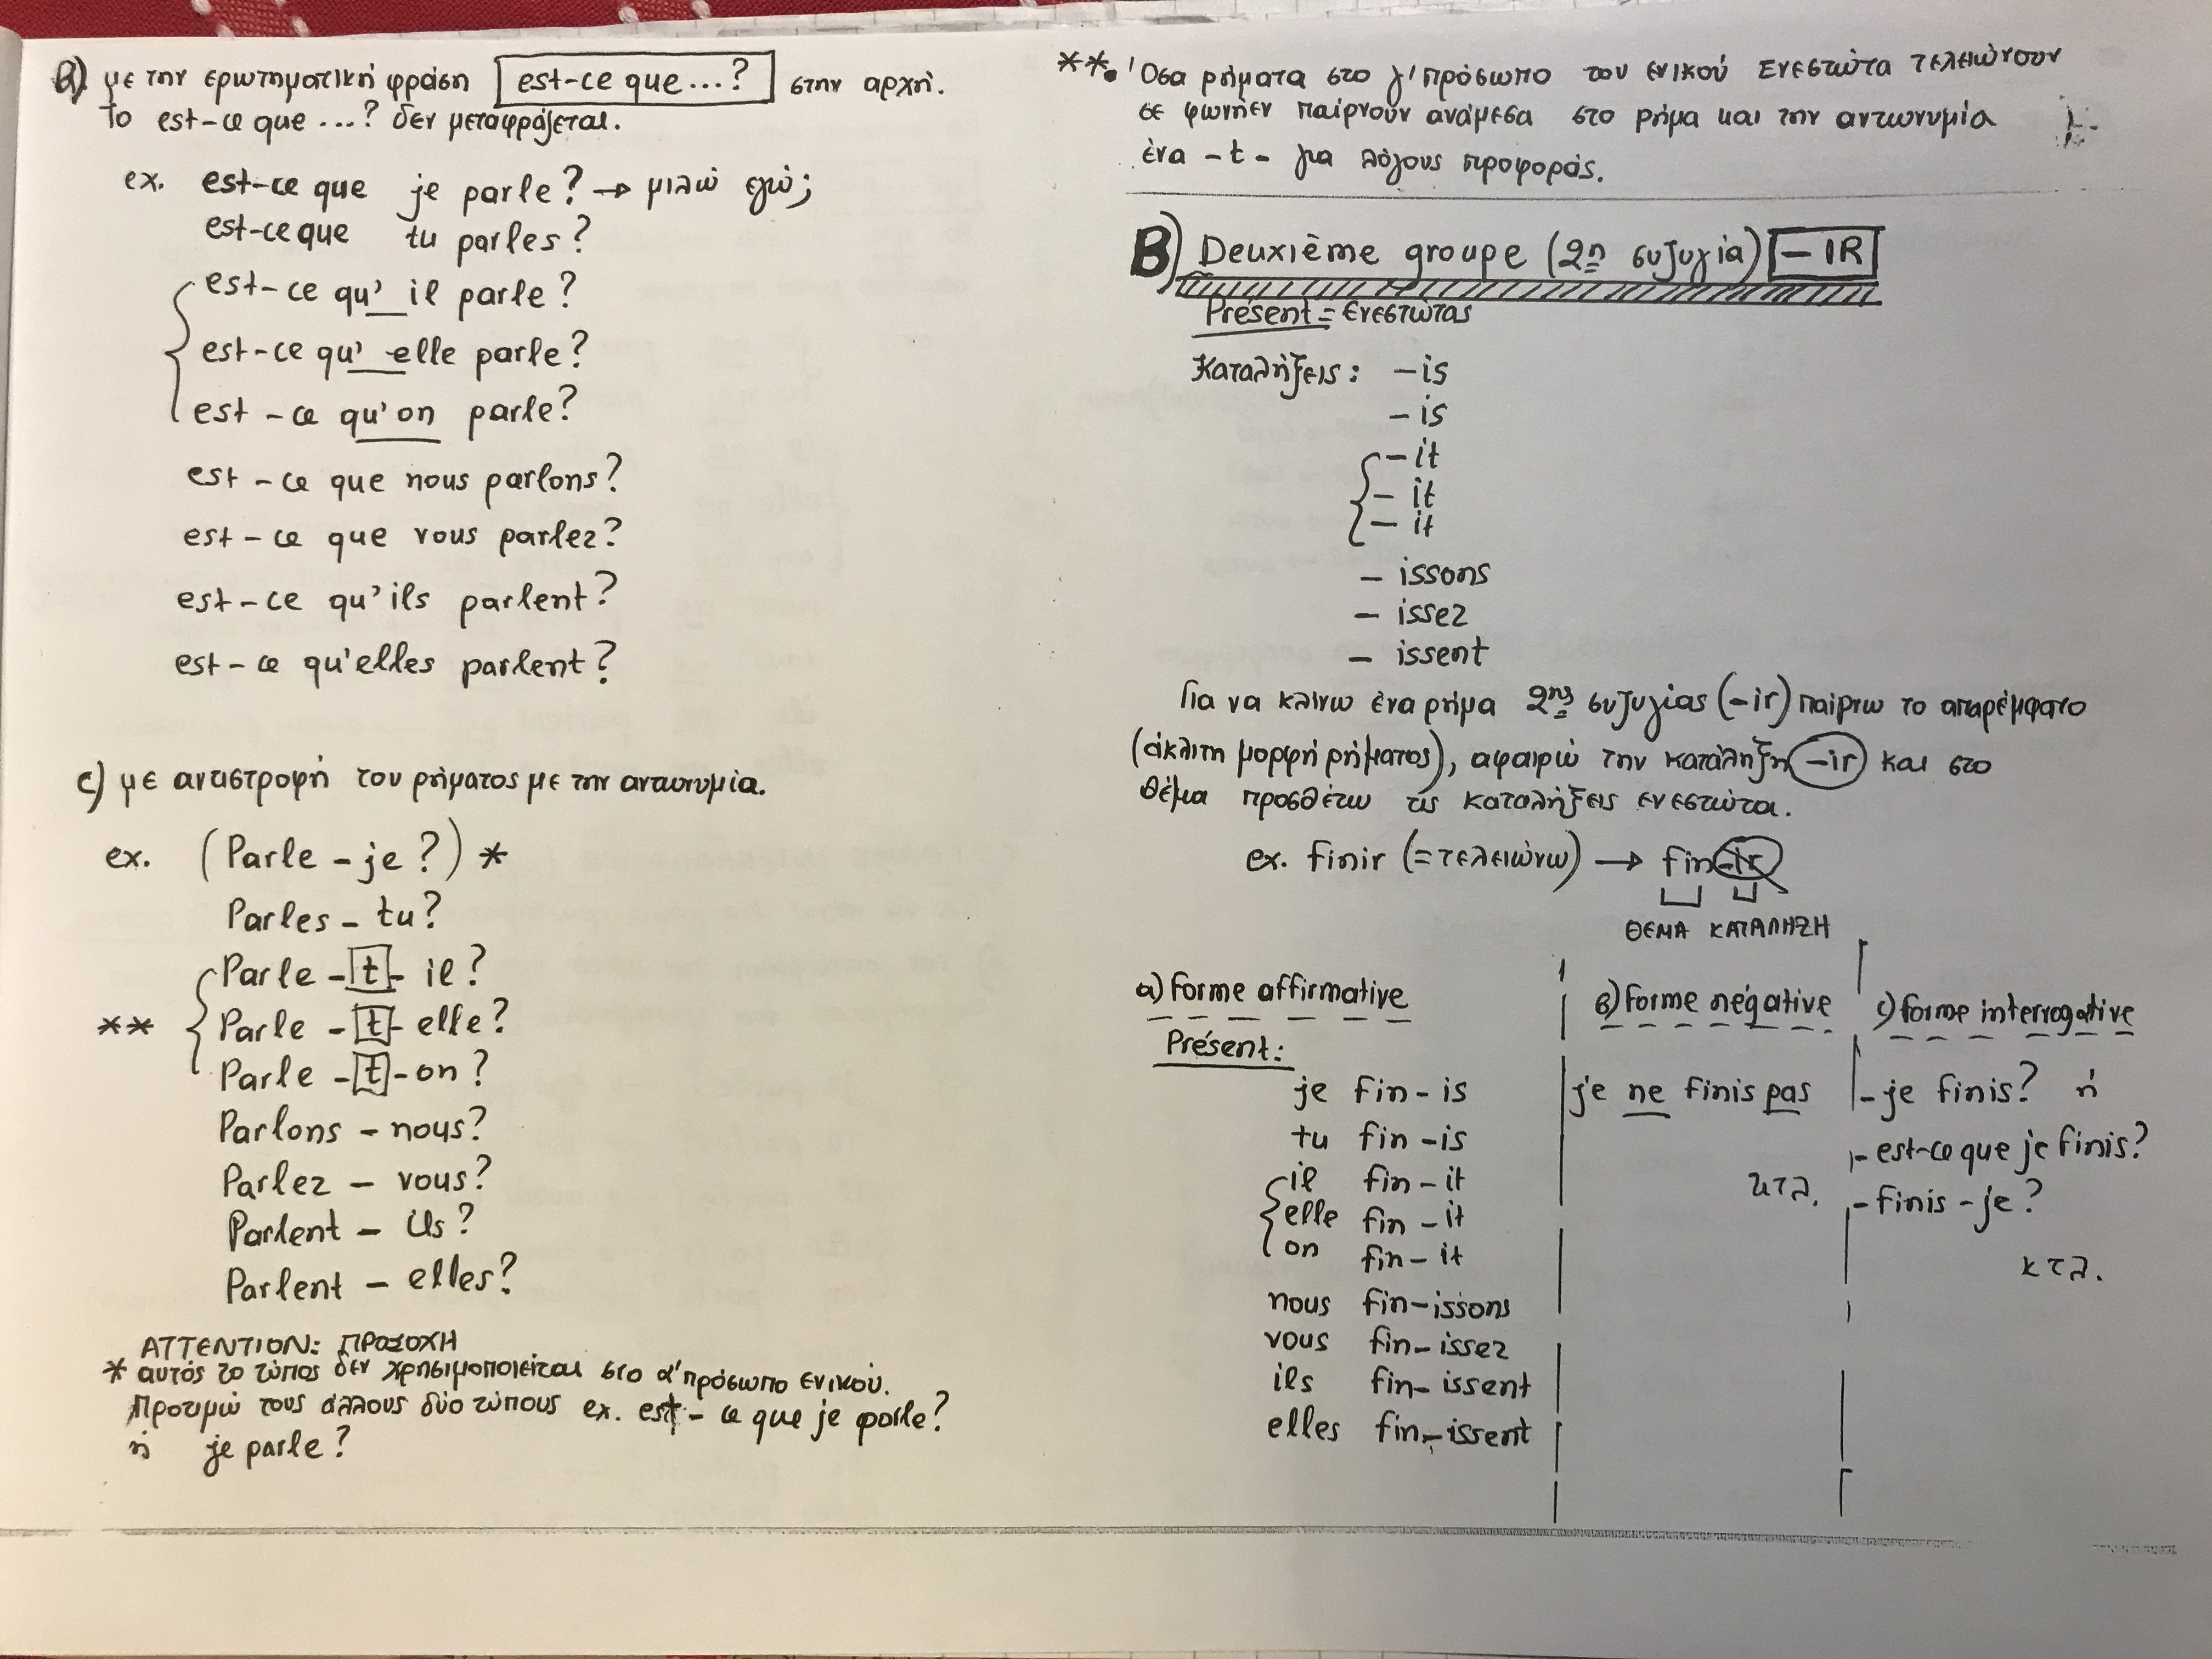 B) με την ερωτηματική φράση est-ce que...? στην αρχή.
Το est-ce que ...? δεν μεταφράζεται.
ex. est-ce que je parle? → μιλώ εγώ;
est-ce que tu parles?
est-ce qu' il parle?
est-ce qu' elle parle?
est-ce qu'on parle?
est-ce que nous parlons?
est-ce que vous parlez?
est-ce qu'ils parlent?
est-ce qu'elles parlent?
c) με αντιστροφή του ρήματος με την αντωνυμία.
ex. (Parle-je?) *
Parles-tu?
Parle-t-il?
** Parle-t-elle?
Parle-t-on?
Parlons-nous?
Parlez-vous?
Parlent-ils?
Parlent-elles?
ATTENTION: ΠΡΟΣΟΧΗ
* αυτός το τύπος δεν χρησιμοποιείται στο α' πρόσωπο ενικού.
Προτιμώ τους άλλους δύο τύπους ex. est-ce que je parle?
ή je parle?
**. Όσα ρήματα στο γ' πρόσωπο του ενικού Ενεστώτα τελειώνουν
σε φωνήεν παίρνουν ανάμεσα στο ρήμα και την αντωνυμία
ένα -t- για λόγους προφοράς.
B) Deuxième groupe (2η συζυγία) -IR
Présent = Ενεστώτας
Καταλήξεις: -is
-is
-it
-it
-it
-issons
-issez
-issent
Για να κλίνω ένα ρήμα 2ης συζυγίας (-ir) παίρνω το απαρέμφατο
(άκλιτη μορφή ρήματος), αφαιρώ την κατάληξη -ir και στο
θέμα προσθέτω τις καταλήξεις ενεστώτα.
ex. finir (=τελειώνω) → fin-ir
ΘΕΜΑ ΚΑΤΑΛΗΞΗ
a) forme affirmative
Présent:
je fin-is
tu fin-is
il fin-it
elle fin-it
on fin-it
nous fin-issons
vous fin-issez
ils fin-issent
elles fin-issent
B) forme négative
je ne finis pas
κτλ.
c) forme interrogative
-je finis? ή
-est-ce que je finis?
-finis-je?
κτλ.